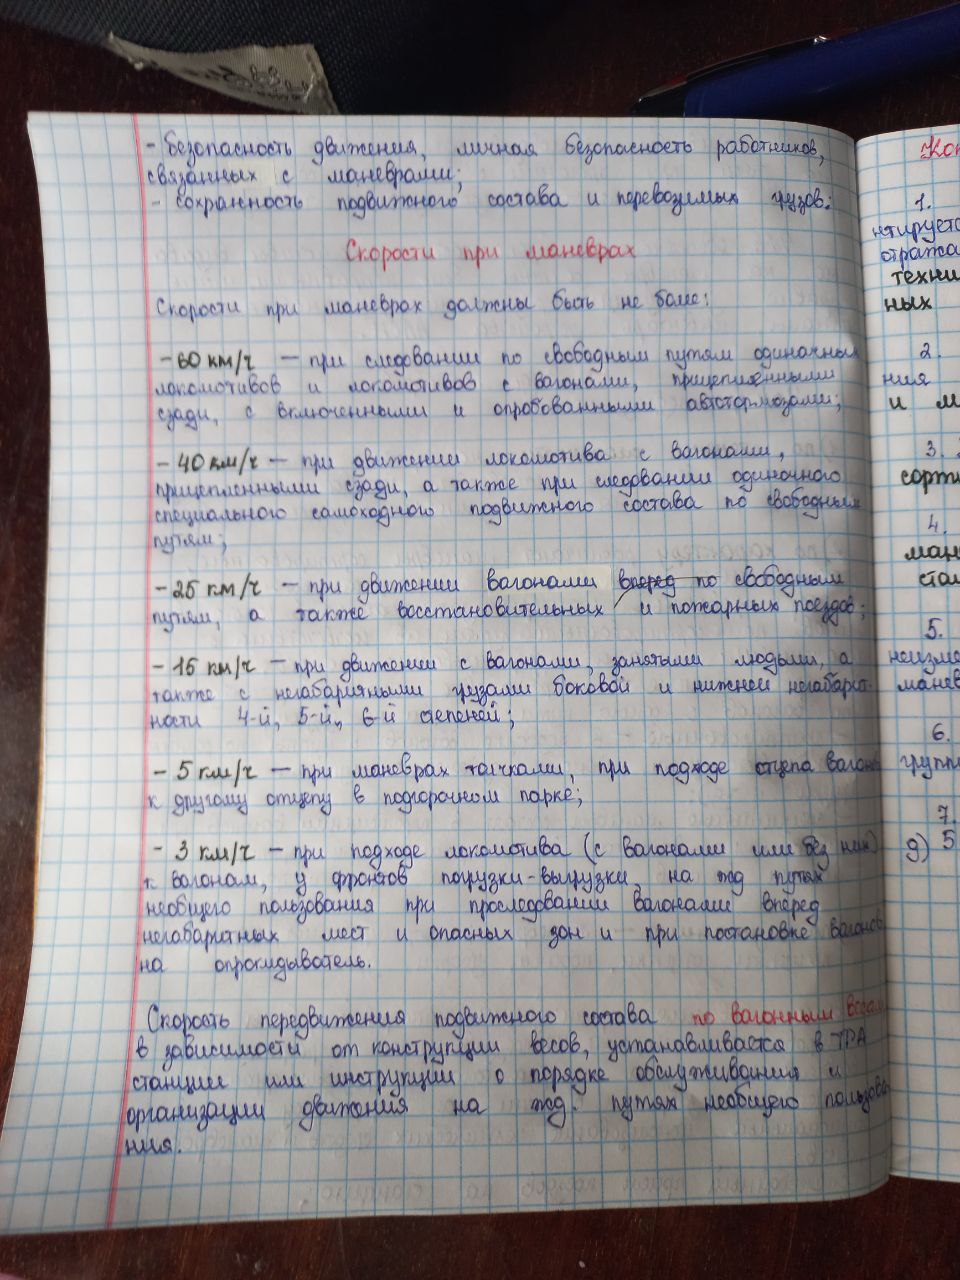 - безопасность движения, личная безопасность работников,
связанных с маневрами;
- сохранность подвижного состава и перевозимых грузов.
Скорости при маневрах
Скорости при маневрах должны быть не более:
- 60 км/ч — при следовании по свободным путям одиночных
локомотивов и локомотивов с вагонами, прицепленными
сзади, с включенными и опробованными автотормозами;
- 40 км/ч — при движении локомотива с вагонами,
прицепленными сзади, а также при следовании одиночного
специального самоходного подвижного состава по свободным
путям;
- 25 км/ч — при движении вагонами вперед по свободным
путям, а также восстановительных и пожарных поездов;
- 15 км/ч — при движении с вагонами, занятыми людьми, а
также с негабаритными грузами боковой и нижней негабарит-
ности 4-й, 5-й, 6-й степеней;
- 5 км/ч — при маневрах толчками, при подходе отцепа вагонов
к другому отцепу в подгорочном парке;
- 3 км/ч — при подходе локомотива (с вагонами или без них)
к вагонам, у фронтов погрузки-выгрузки на жд путях
необщего пользования при проследовании вагонами вперед
негабаритных мест и опасных зон и при постановке вагонов
на опрокидыватель.
Скорость передвижения подвижного состава по вагонным весам
в зависимости от конструкции весов, устанавливается в ТРА
станции или инструкции о порядке обслуживания и
организации движения на жд. путях необщего пользова-
ния.
1.
нтирует
отража
техни
ных
2.
ния
и м
3.
сорти
4.
ман
стан
5.
неизме
манев
6.
групп
7.
9) 5